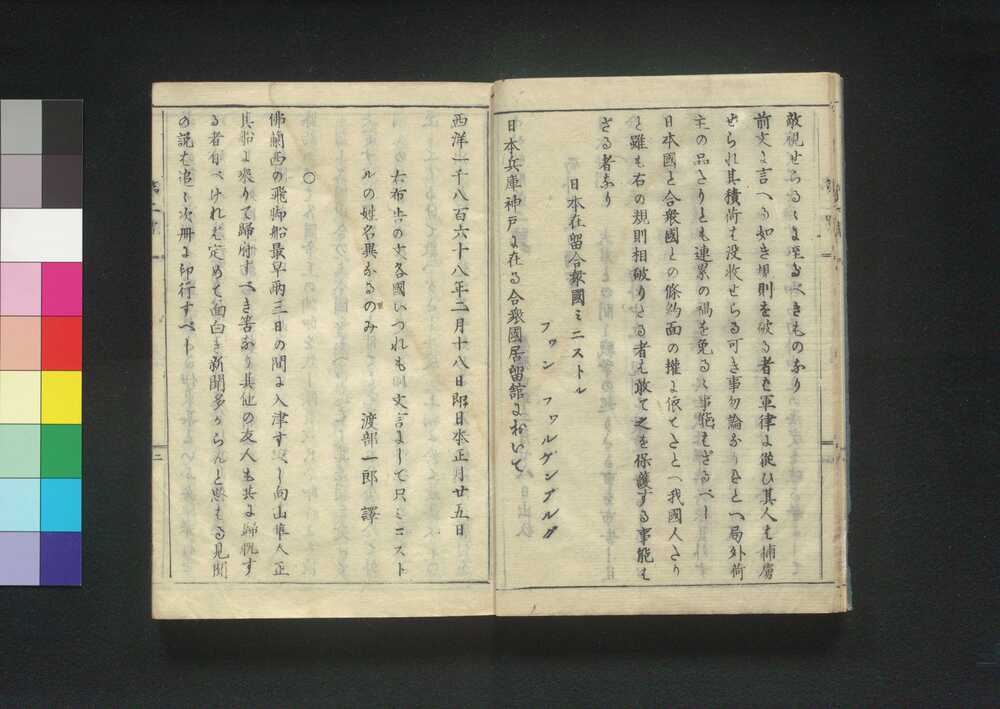 敵視せらるゝに至るべきものなり
前文に言へる如き規則を破る者も軍律に從ひ其人も捕虜
せられ其積荷も没收せらる可き事勿論なりたとへ局外荷
主の品たりとも連累の禍を免るゝ事能はざるべし
日本國と合衆國との條約面の權に依てたとへ我國人たり
と雖も右の規則相破りたる者は敢て之を保護する事能は
ざる者なり
日本在留合衆國ミニストル
フワン フワルゲンブルグ
日本兵庫神戸に在る合衆國居留館において
西洋一千八百六十八年二月十八日即日本正月廿五日
右布告の文各國いつれも同文言にして只ミニスト
ルの姓名異なるのみ
渡部一郎 譯
○
佛蘭西の飛脚船最早兩三日の間に入津すべし向山隼人正
其船に乘りて歸府すべき筈なり其他の友人も共に歸帆す
る者有べければ定めて面白き新聞多からんと思はる見聞
の説を追々次冊に印行すべし